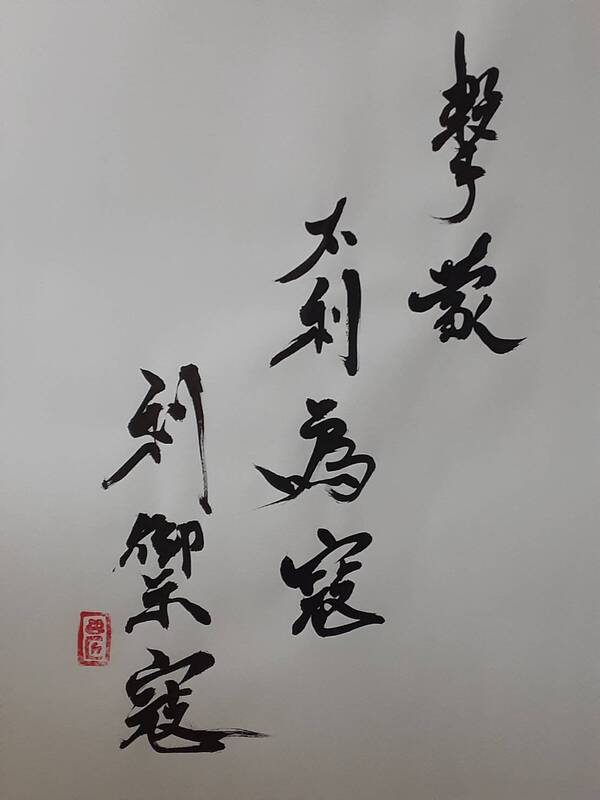 擊蒙
不利為寇
利禦寇